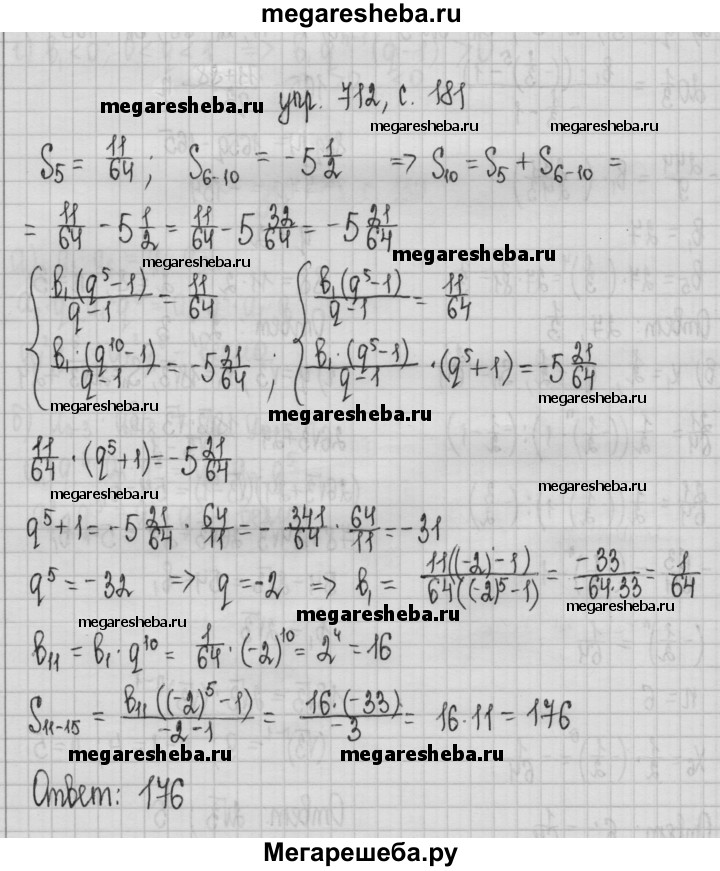 megaresheba.ru
упр. 712, с. 181
megaresheba.ru
megaresheba.ru megaresheba.ru
S₅ = 11/64; S₆₋₁₀ = -5 1/2 => S₁₀ = S₅ + S₆₋₁₀ =
= 11/64 - 5 1/2 = 11/64 - 5 32/64 = -5 21/64
megaresheba.ru
megaresheba.ru
{ b₁(q⁵-1)/q-1 = 11/64 { b₁(q⁵-1)/q-1 = 11/64
b₁·(q¹⁰-1)/q-1 = -5 21/64 ; b₁·(q⁵-1)/q-1 · (q⁵+1) = -5 21/64
megaresheba.ru megaresheba.ru megaresheba.ru
11/64 · (q⁵+1) = -5 21/64
megaresheba.ru
q⁵+1 = -5 21/64 · 64/11 = - 341/64 · 64/11 = -31
megaresheba.ru
q⁵ = -32 => q = -2 => b₁ = 11((-2)-1)/64((-2)⁵-1) = -33/-64·33 = 1/64
megaresheba.ru megaresheba.ru megaresheba.ru
b₁₁ = b₁·q¹⁰ = 1/64 · (-2)¹⁰ = 2⁴ = 16
S₁₁₋₁₅ = b₁₁((-2)⁵-1)/-2-1 = 16·(-33)/-3 = 16·11 = 176
megaresheba.ru megaresheba.ru
Ответ: 176
Мегарешеба.ру